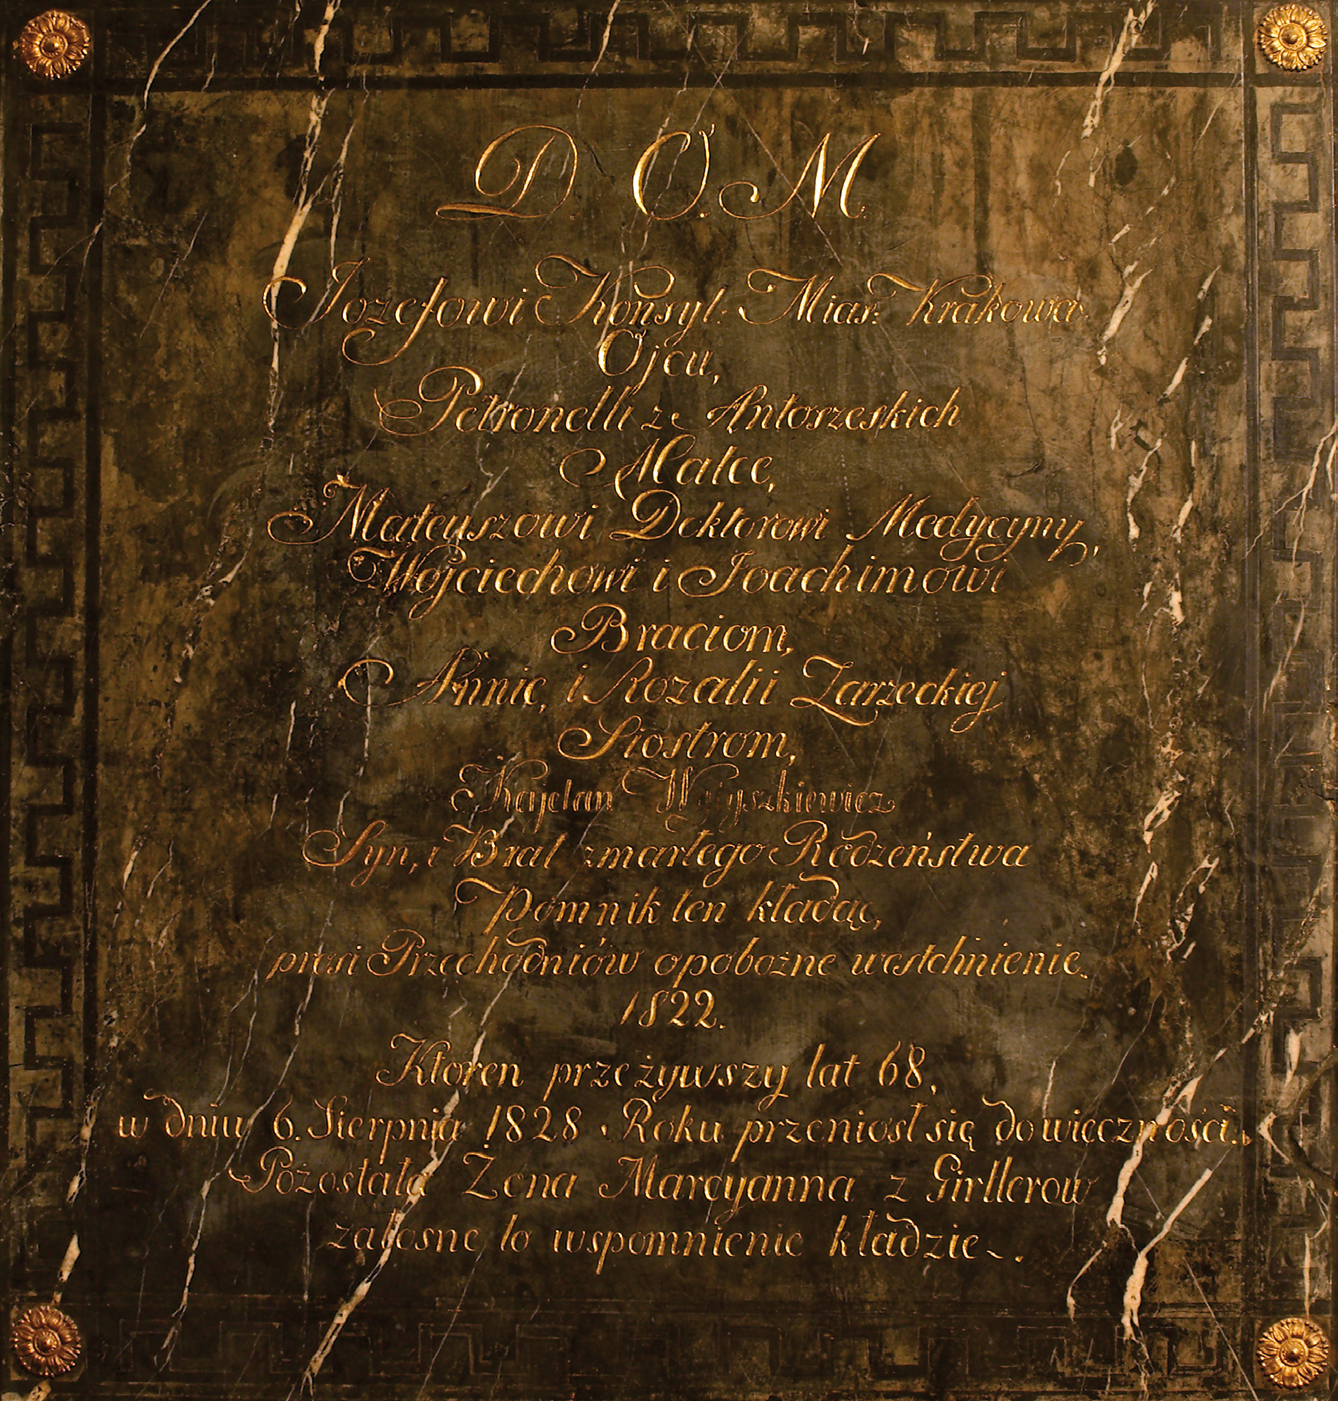 D. O. M
Jozefowi Konsyl: Mias: Krakowa
Ojcu,
Petronelli z Antoszeskich
Matce,
Mateuszowi Doktorowi Medycyny,
Woyciechowi i Joachimowi
Braciom,
Annie, i Rozalii Zarzeckiej
Siostrom,
Kajetan
Syn, i Brat zmarłego Rodzeństwa
Pomnik ten kładąc,
prosi Przechodniów o pobożne westchnienie.
1822.
Ktoren przeżywszy lat 68,
w dniu 6. Sierpnia 1828 Roku przeniosł się do wieczności.
Pozostała Żona Marcyanna z Girtlerow
załosne to wspomnienie kładzie.